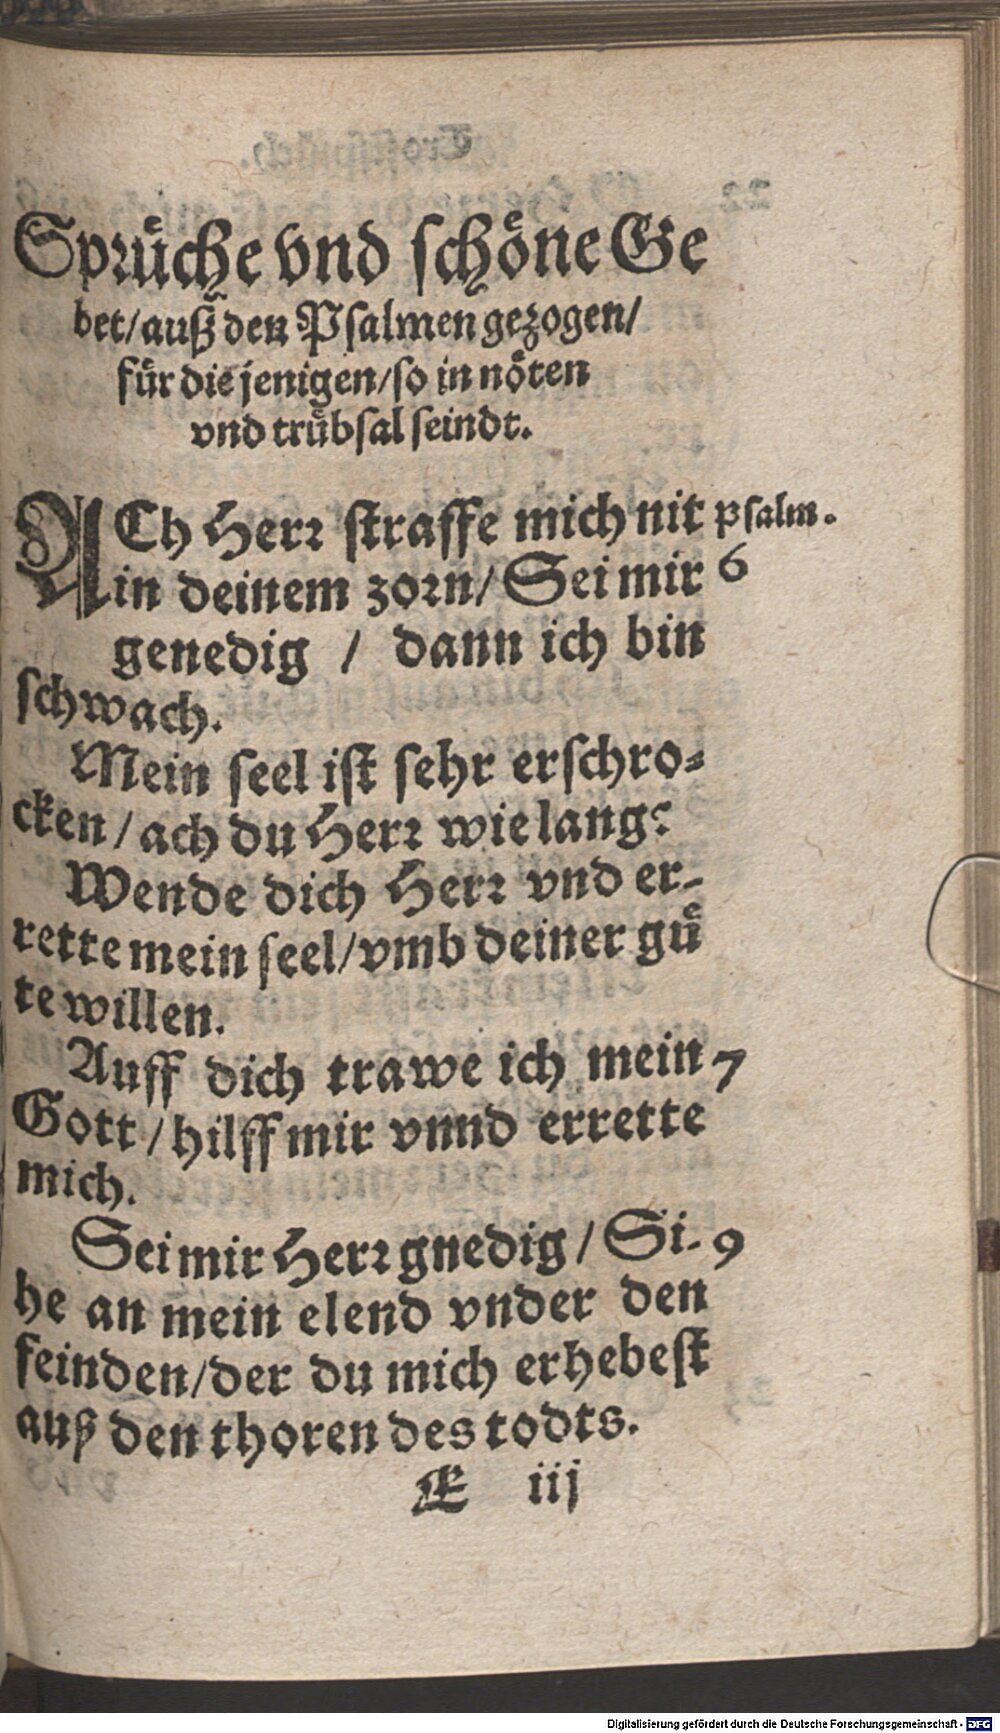 Spruͤche vnd ſchoͤne Ge
bet/auß den Pſalmen gezogen/
fuͤr die jenigen/ſo in noͤten
vnd truͤbſal ſeindt.
ACh Herꝛ ſtraffe mich nit Pſalm.
in deinem zoꝛn/ Sei mir 6
genedig / dann ich bin
ſchwach.
Mein ſeel iſt ſehr erſchro⸗
cken/ach du Herꝛ wie lang?
Wende dich Herꝛ vnd er-
rette mein ſeel/vmb deiner guͤ
te willen.
Auff dich trawe ich mein 7
Gott/hilff mir vnnd errette
mich.
Sei mir Herꝛ gnedig/ Si- 9
he an mein elend vnder den
feinden/der du mich erhebeſt
auß den thoren des todts.
E iij
Digitalisierung gefördert durch die Deutsche Forschungsgemeinschaft - DFG